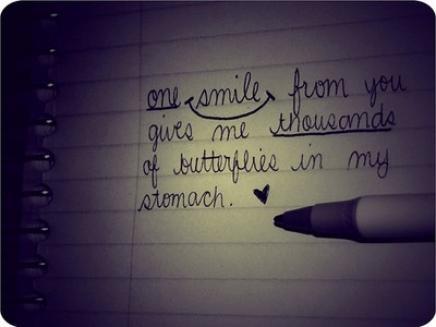 one smile from you
gives me thousands
of butterflies in my
stomach. ♥